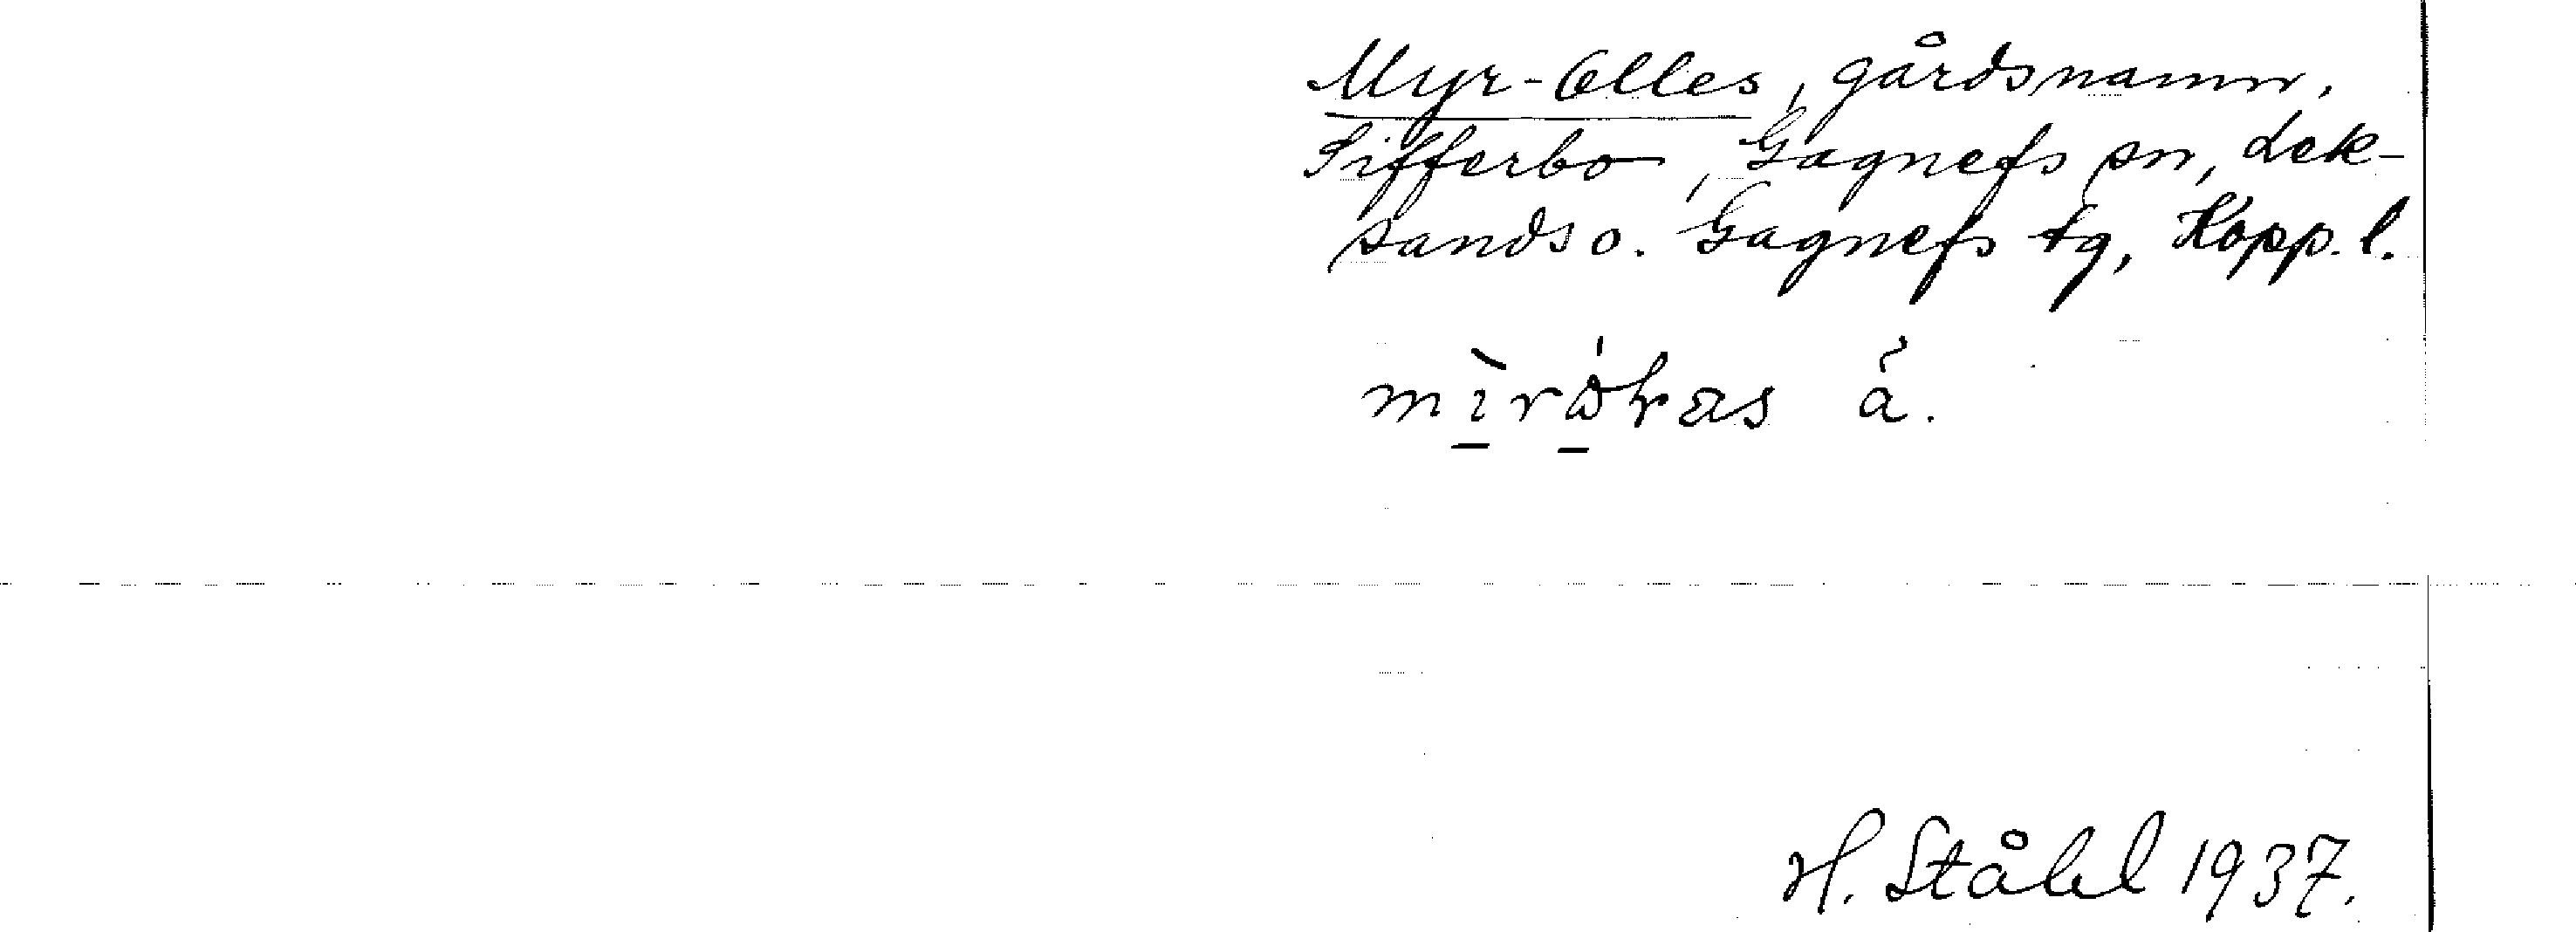 Myr-Olles, gårdsnamn,
Sifferbo, Gagnefs sn, Lek-
sands o. Gagnefs tg, Kopp. l.
H. Ståhl 1937.